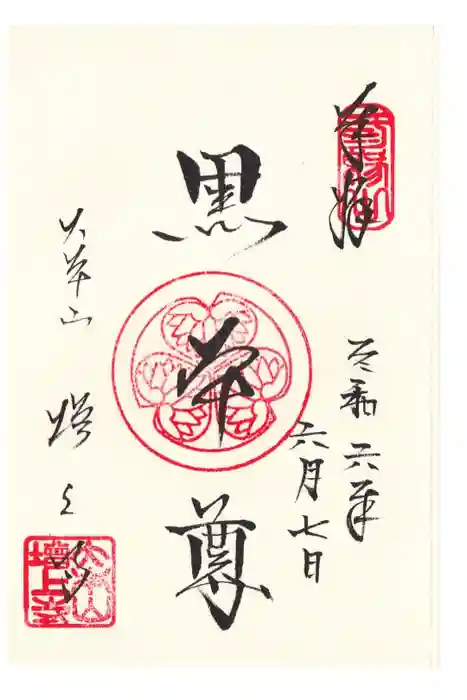 奉拝
令和六年
六月七日
黒本尊
大本山
増上寺
大本山
増上寺